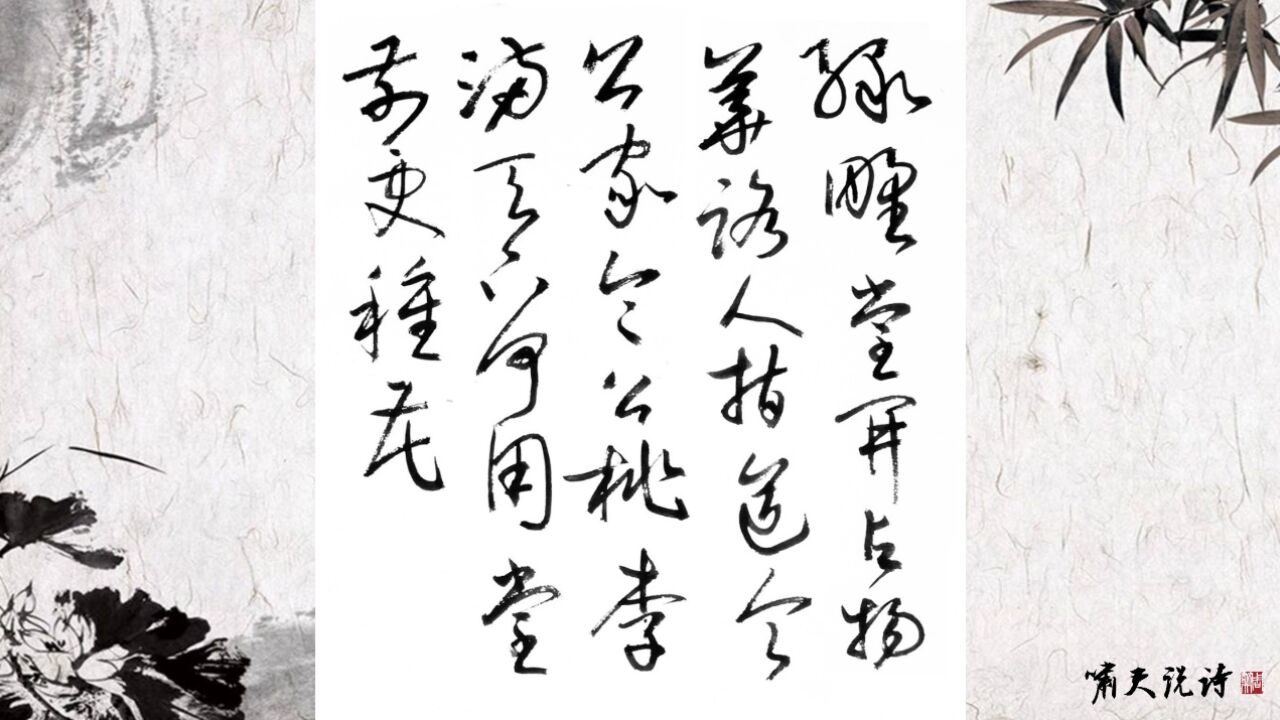 绿野堂开占物
华路人指道令
公家令公桃李
满天下何用堂
前更種花
啸天说诗